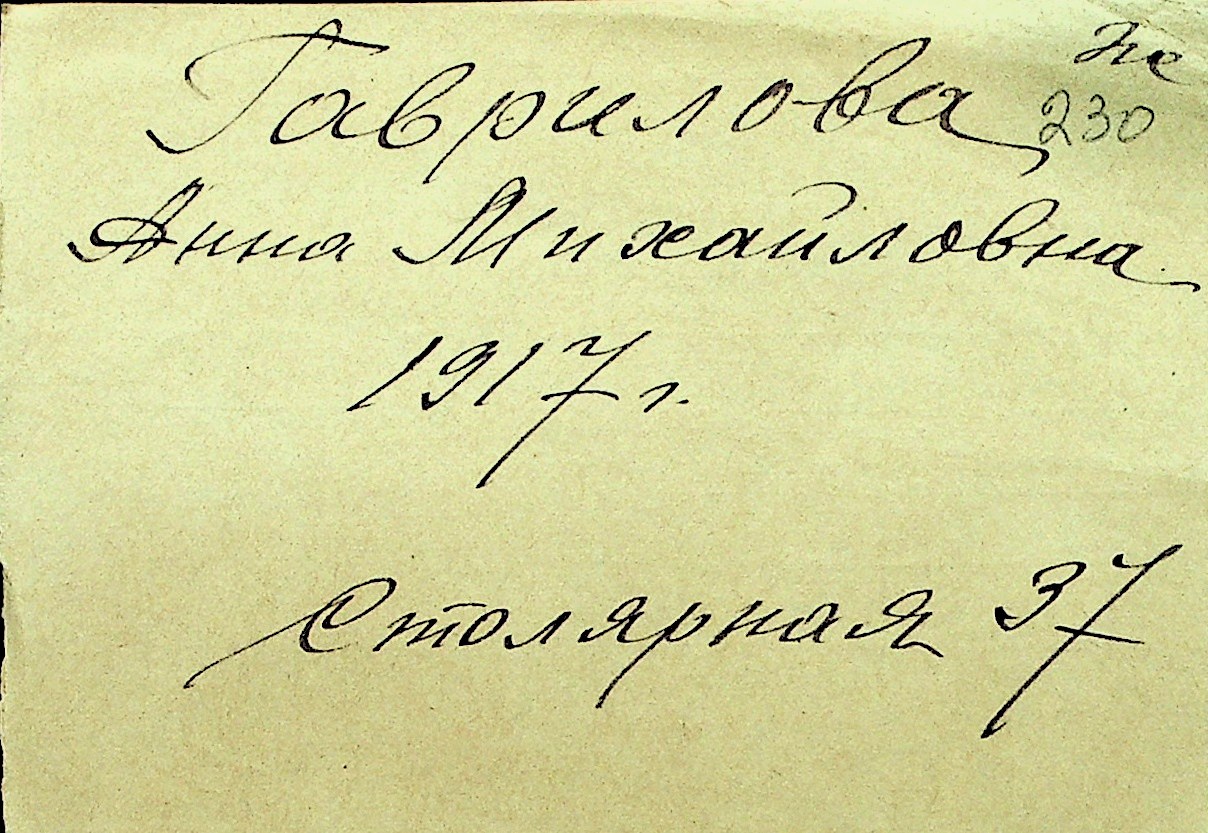 Гаврилова
230
Анна Михайловна
1917 г.
Столярная 37